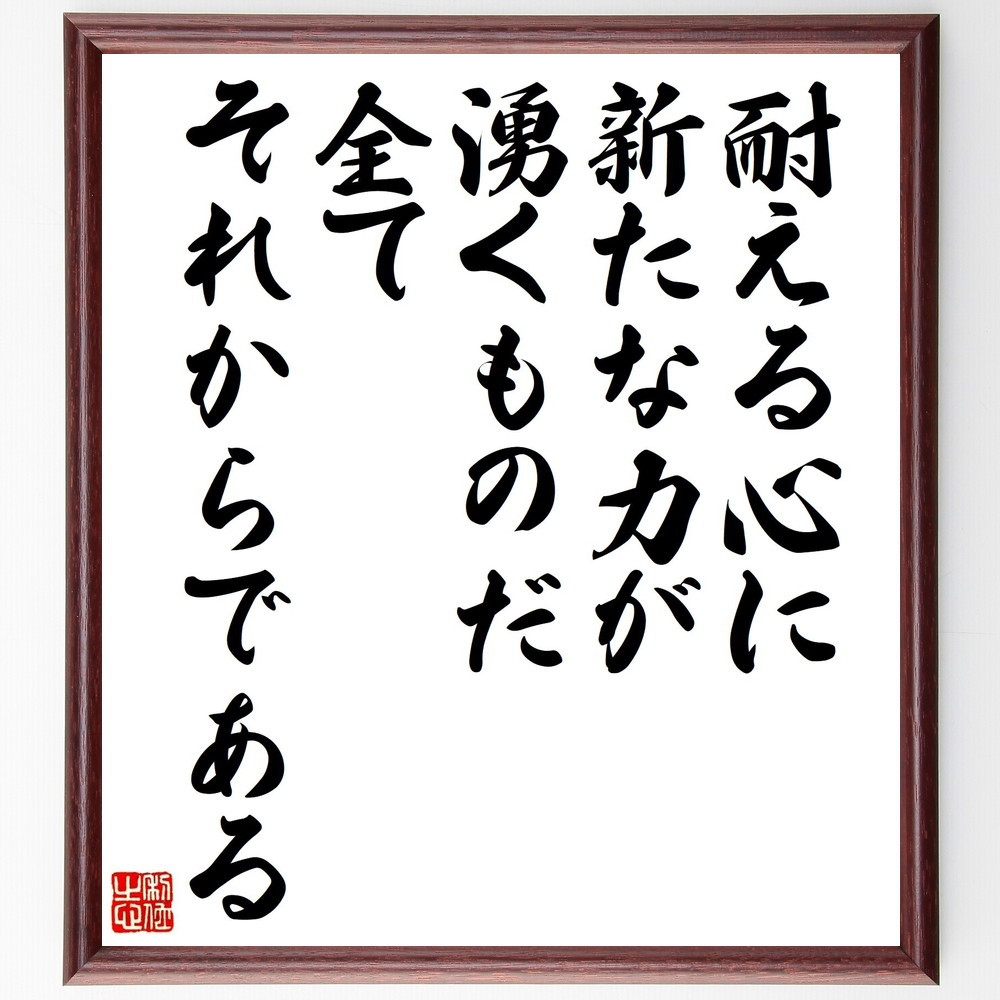 耐える心に
新たな力が
湧くものだ
全て
それからである